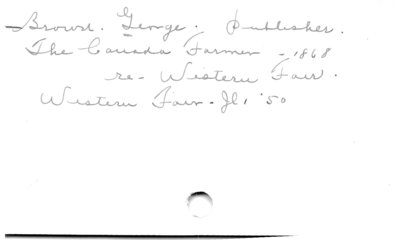 Brown. George. Publisher.
The Canada Farmer - 1868
re- Western Fair.
Western Fair - Jl, '50